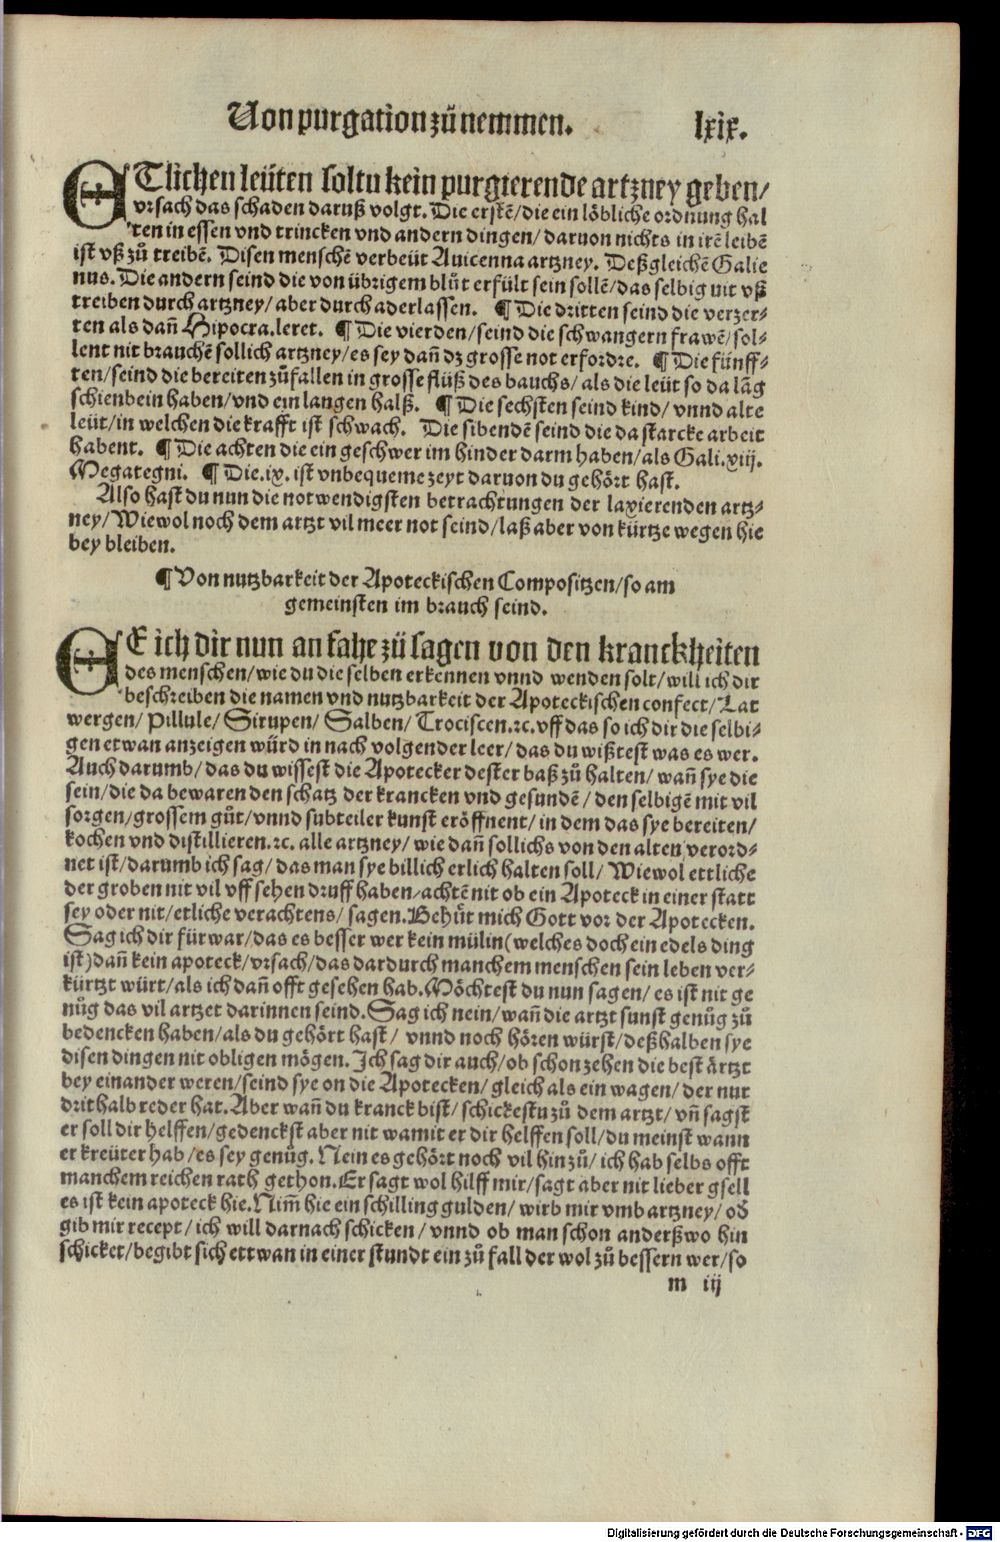 Von purgation zů nemmen. lxix.
ETlichen leüten soltu kein purgierende artzney geben/
vrsach das schaden daruß volgt. Die erstē/die ein löbliche ordnung hal
ten in essen vnd trincken vnd andern dingen/daruon nichts in irē leibē
ist vß zů treibē. Disen menschē verbeüt Auicenna artzney. Deßgleichē Galie
nus. Die andern seind die von übrigem blůt erfült sein sollē/das selbig nit vß
treiben durch artzney/aber durch aderlassen. ¶ Die dritten seind die verzer⸗
ten als dañ Hipocra.leret. ¶ Die vierden/seind die schwangern frawē/sol⸗
lent nit brauchē sollich artzney/es sey dañ dz grosse not erfordre. ¶ Die fünff⸗
ten/seind die bereiten zůfallen in grosse flüß des bauchs/als die leüt so da lāg
schienbein haben/vnd ein langen halß. ¶ Die sechsten seind kind/vnnd alte
leüt/in welchen die krafft ist schwach. Die sibendē seind die da starcke arbeit
habent. ¶ Die achten die ein geschwer im hinder darm haben/als Gali.xiij.
Megategni. ¶ Die.ix. ist vnbequeme zeyt daruon du gehört hast.
Also hast du nun die notwendigsten betrachtungen der laxierenden artz⸗
ney/Wiewol noch dem artzt vil meer not seind/laß aber von kürtze wegen hie
bey bleiben.
¶ Von nutzbarkeit der Apoteckischen Compositzen/so am
gemeinsten im brauch seind.
EE ich dir nun an fahe zů sagen von den kranckheiten
des menschen/wie du die selben erkennen vnnd wenden solt/will ich dir
beschreiben die namen vnd nutzbarkeit der Apoteckischen confect/Lat
wergen/Pillule/Sirupen/Salben/Trociscen.⁊c.vff das so ich dir die selbi⸗
gen etwan anzeigen würd in nach volgender leer/das du wißtest was es wer.
Auch darumb/das du wissest die Apotecker dester baß zů halten/wañ sye die
sein/die da bewaren den schatz der krancken vnd gesundē/den selbigē mit vil
sorgen/grossem gůt/vnnd subteiler kunst eröffnent/in dem das sye bereiten/
kochen vnd distillieren.⁊c.alle artzney/wie dañ sollichs von den alten verord⸗
net ist/darumb ich sag/das man sye billich erlich halten soll/Wiewol ettliche
der groben nit vil vff sehen druff haben/achtē nit ob ein Apoteck in einer statt
sey oder nit/etliche verachtens/sagen.Behůt mich Gott vor der Apotecken.
Sag ich dir fürwar/das es besser wer kein mülin(welches doch ein edels ding
ist)dañ kein apoteck/vrsach/das dardurch manchem menschen sein leben ver⸗
kürtzt würt/als ich dañ offt gesehen hab.Möchtest du nun sagen/es ist nit ge
nůg das vil artzet darinnen seind.Sag ich nein/wañ die artzt sunst genůg zů
bedencken haben/als du gehört hast/vnnd noch hören würst/deßhalben sye
disen dingen nit obligen mögen.Ich sag dir auch/ob schon zehen die best ärtzt
bey einander weren/seind sye on die Apotecken/gleich als ein wagen/der nur
drithalb reder hat.Aber wañ du kranck bist/schickestu zů dem artzt/vñ sagst
er soll dir helffen/gedenckst aber nit wamit er dir helffen soll/du meinst wann
er kreüter hab/es sey genůg.Nein es gehört noch vil hinzů/ich hab selbs offt
manchem reichen rath gethon.Er sagt wol hilff mir/sagt aber nit lieber gsell
es ist kein apoteck hie.Nim̃ hie ein schilling gulden/wirb mir vmb artzney/od̕
gib mir recept/ich will darnach schicken/vnnd ob man schon anderßwo hin
schicket/begibt sich ettwan in einer stundt ein zů fall der wol zů bessern wer/so
m iij
Digitalisierung gefördert durch die Deutsche Forschungsgemeinschaft - DFG